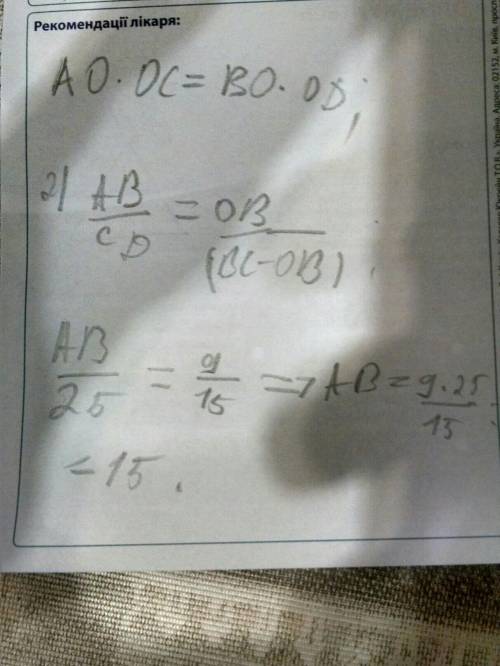 Рекомендації лікаря:
AO · OC = BO · OD;
2) AB/CD = OB/(BC-OB).
AB/25 = 9/15 => AB = 9·25/15
= 15.